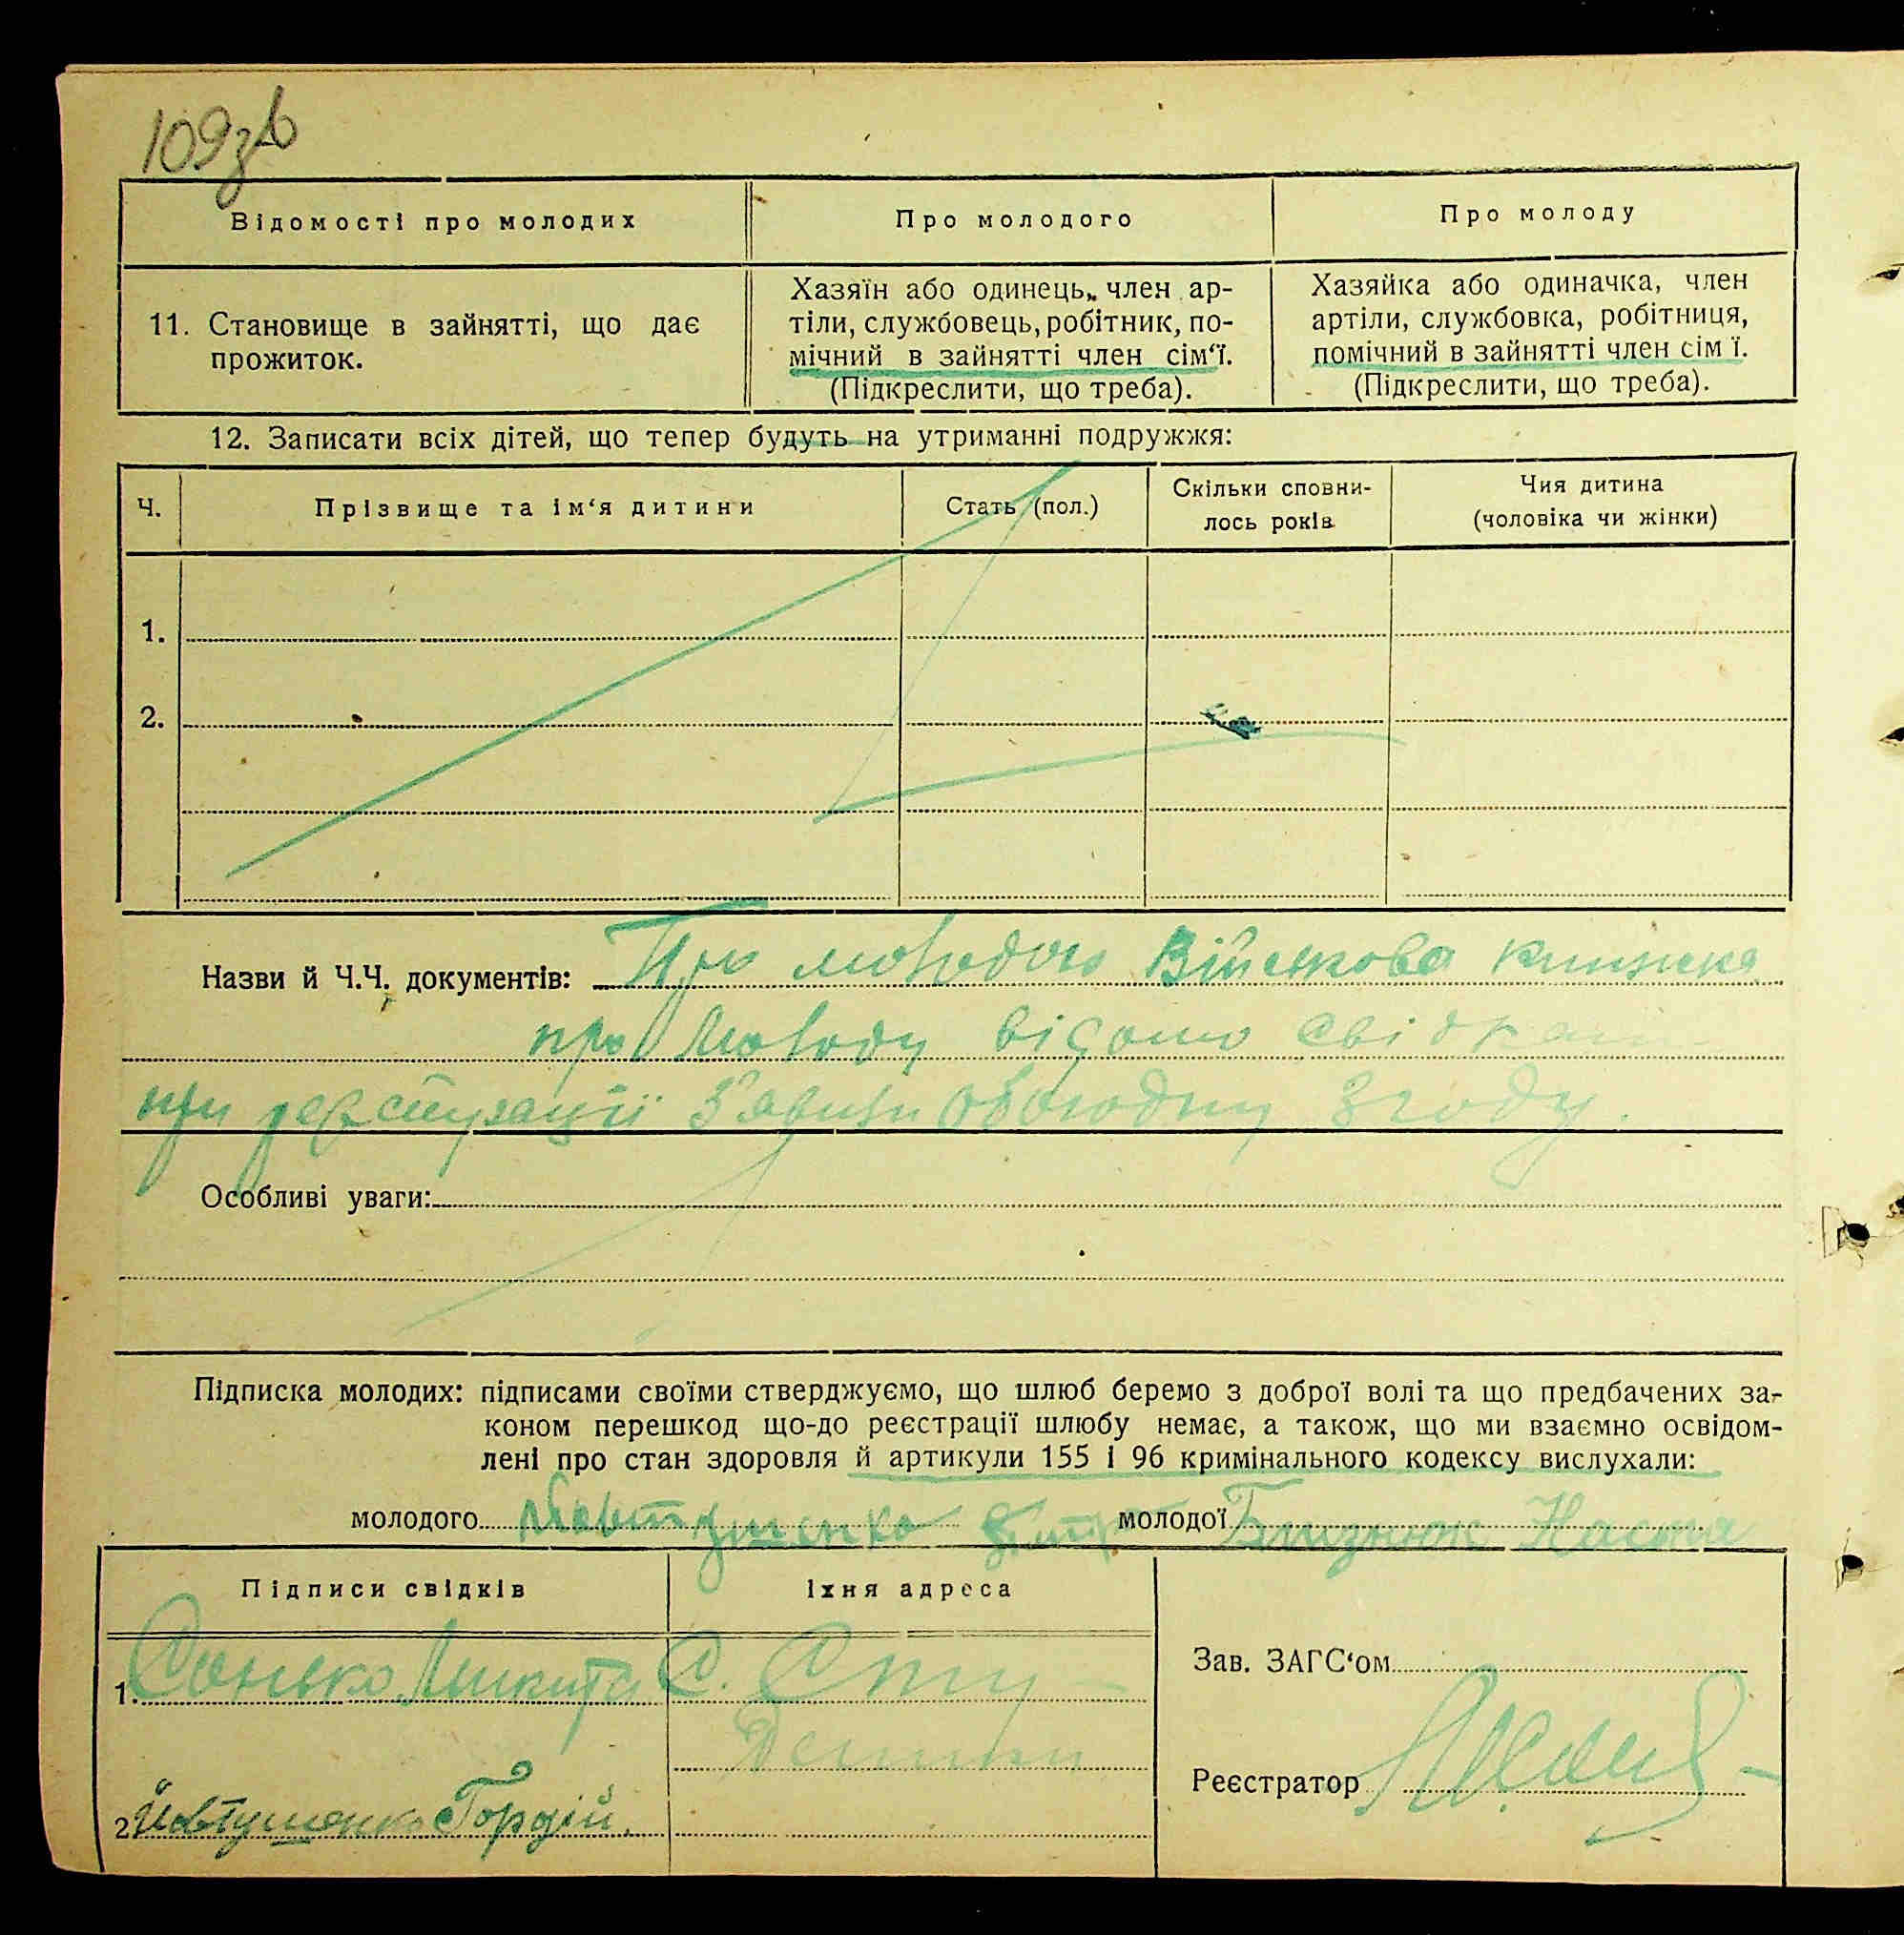 109зв
Відомості про молодих
Про молодого
Про молоду
11. Становище в зайнятті, що дає
прожиток.
Хазяїн або одинець, член ар-
тіли, службовець, робітник, по-
мічний в зайнятті член сім‘ї.
(Підкреслити, що треба).
Хазяйка або одиначка, член
артіли, службовка, робітниця,
помічний в зайнятті член сім ї.
(Підкреслити, що треба).
12. Записати всіх дітей, що тепер будуть на утриманні подружжя:
Ч.
Прізвище та ім‘я дитини
Стать (пол.)
Скільки сповни-
лось років
Чия дитина
(чоловіка чи жінки)
1.
2.
Назви й Ч.Ч. документів: Про молодого Військова книжка
про молоду відомо свідкам
при реєстрації з'явили обоюдну згоду.
Особливі уваги:
Підписка молодих: підписами своїми стверджуємо, що шлюб беремо з доброї волі та що предбачених за-
коном перешкод що-до реєстрації шлюбу немає, а також, що ми взаємно освідом-
лені про стан здоровля й артикули 155 і 96 кримінального кодексу вислухали:
молодого Йовтушенко молодої Близнюк Настя
Підписи свідків
Їхня адреса
1. Сонько Микита С.
Зав. ЗАГС‘ом
Реєстратор
2 Йовтушенко Гордій.